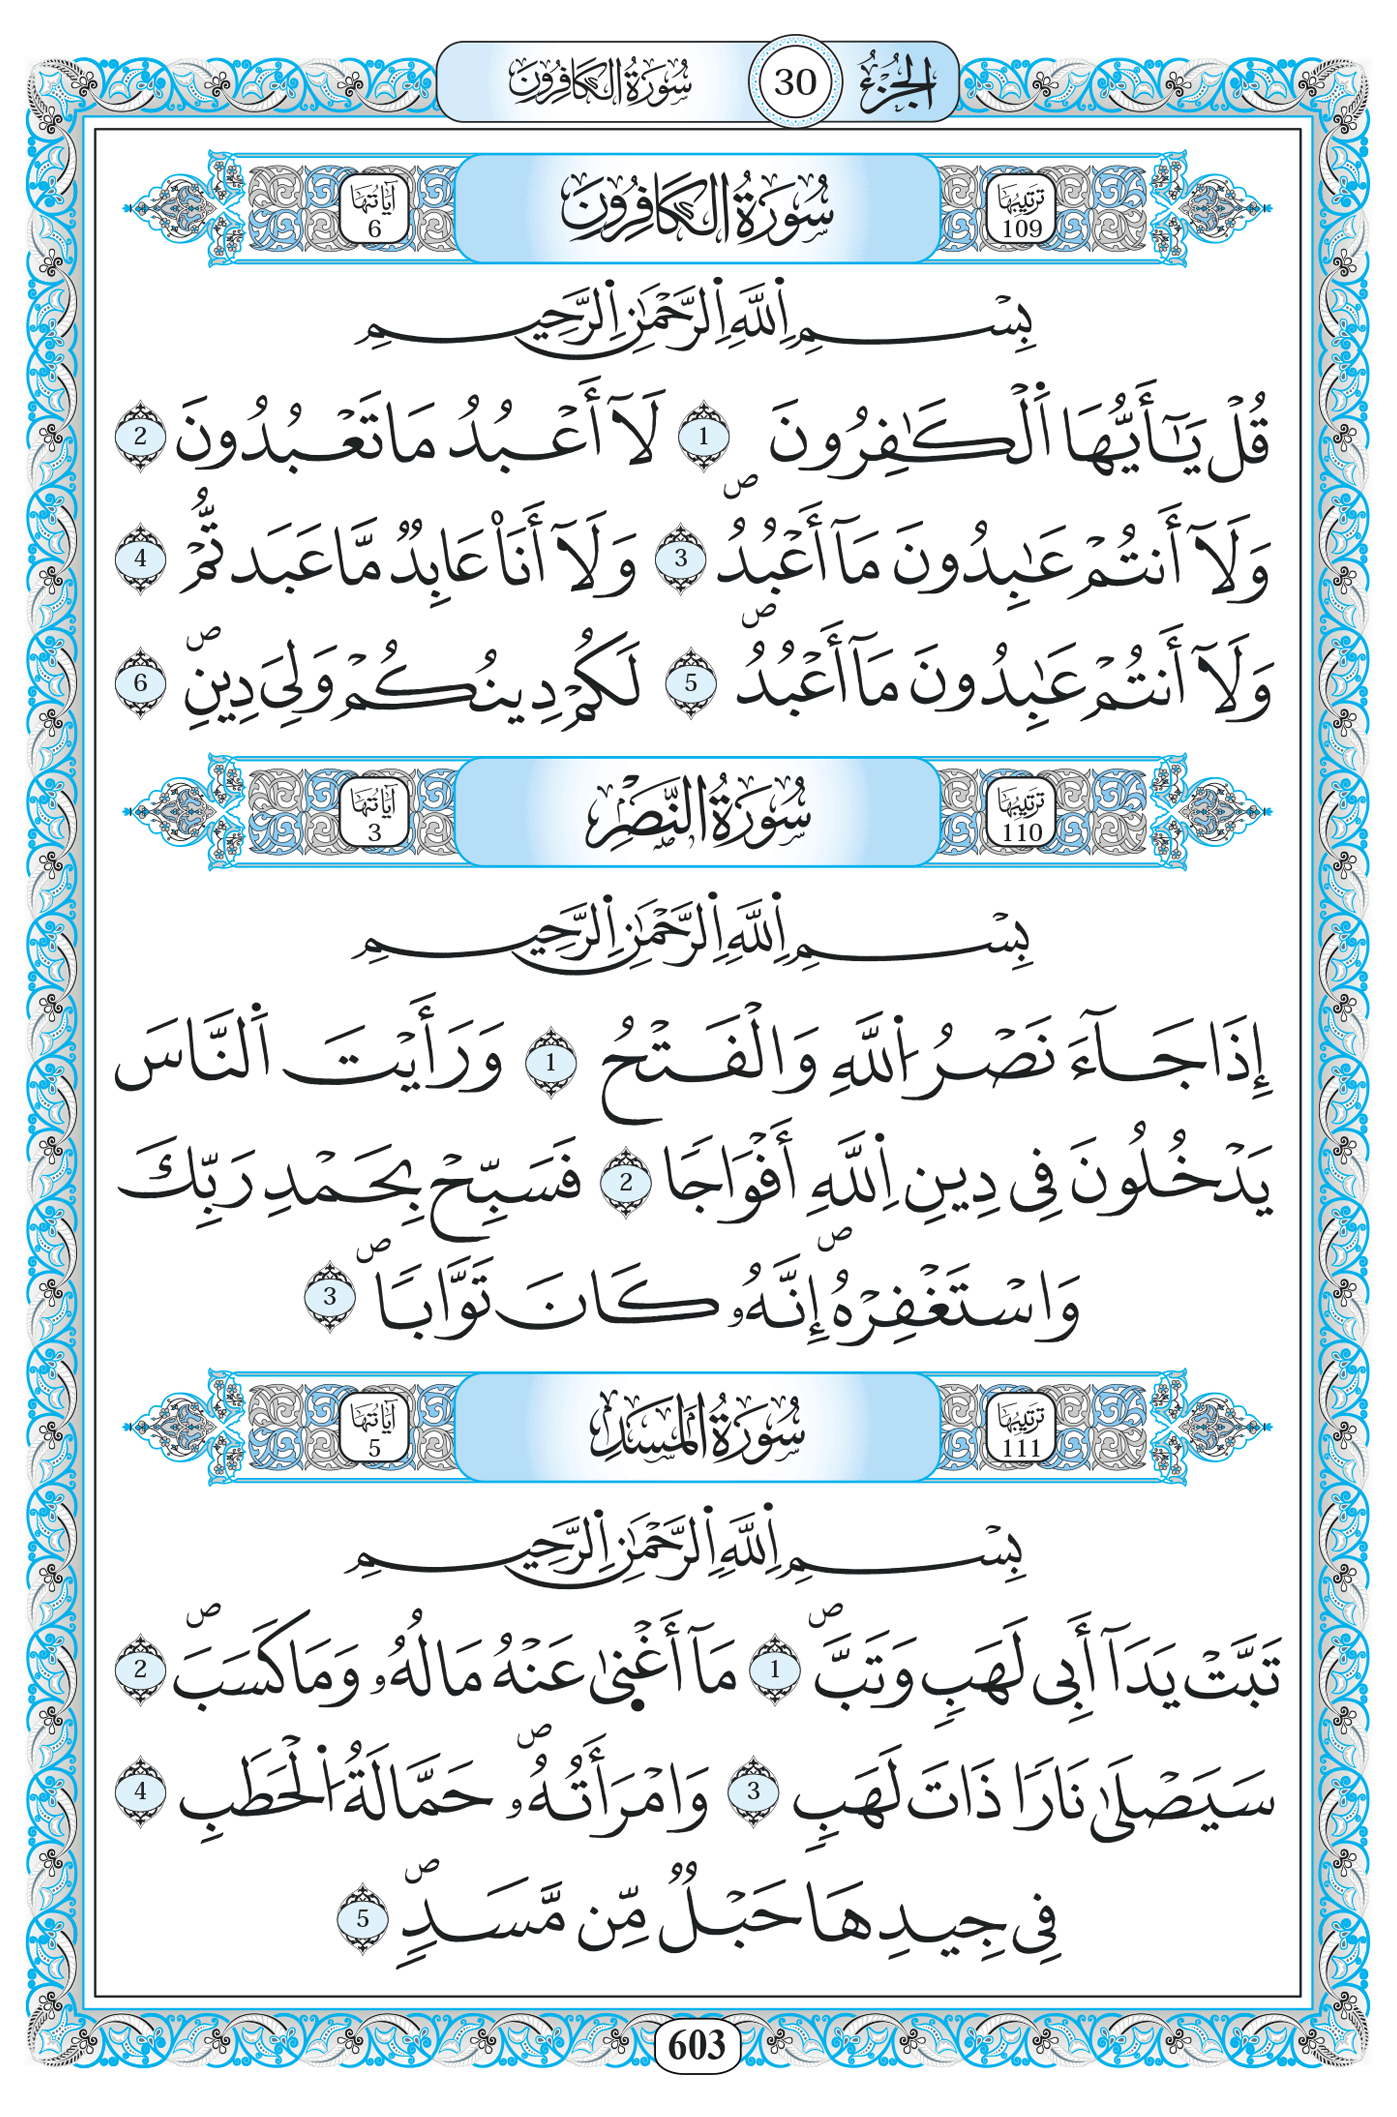 الجُزْءُ 30 سُورَةُ الكَافِرُون
تَرْتِيبُهَا 109 سُورَةُ الكَافِرُون آيَاتُهَا 6
بِسْمِ اِللَّهِ اِلرَّحْمَٰنِ اِلرَّحِيمِ
قُلْ يَٰٓأَيُّهَا اَ۬لْكَٰفِرُونَ 1 لَآ أَعْبُدُ مَا تَعْبُدُونَ 2
وَلَآ أَنتُمْ عَٰبِدُونَ مَآ أَعْبُدُ ص 3 وَلَآ أَنَا۠ عَابِدٌ مَّا عَبَدتُّمْ 4
وَلَآ أَنتُمْ عَٰبِدُونَ مَآ أَعْبُدُ ص 5 لَكُمْ دِينُكُمْ وَلِيَ دِينِ ص 6
تَرْتِيبُهَا 110 سُورَةُ النَّصْرِ آيَاتُهَا 3
بِسْمِ اِللَّهِ اِلرَّحْمَٰنِ اِلرَّحِيمِ
إِذَا جَآءَ نَصْرُ اُ۬للَّهِ وَالْفَتْحُ 1 وَرَأَيْتَ اَ۬لنَّاسَ
يَدْخُلُونَ فِي دِينِ اِ۬للَّهِ أَفْوَاجًا 2 فَسَبِّحْ بِحَمْدِ رَبِّكَ
وَاسْتَغْفِرْهُ ص إِنَّهُۥ كَانَ تَوَّابًا ص 3
تَرْتِيبُهَا 111 سُورَةُ المَسَدِ آيَاتُهَا 5
بِسْمِ اِللَّهِ اِلرَّحْمَٰنِ اِلرَّحِيمِ
تَبَّتْ يَدَآ أَبِي لَهَبٍ وَتَبَّ ص 1 مَآ أَغْن۪ىٰ عَنْهُ مَالُهُۥ وَمَا كَسَبَ ص 2
سَيَصْلَىٰ نَارًا ذَاتَ لَهَبٍ 3 وَامْرَأَتُهُۥ ص حَمَّالَةُ اُ۬لْحَطَبِ 4
فِي جِيدِهَا حَبْلٌ مِّن مَّسَدٍ ص 5
603